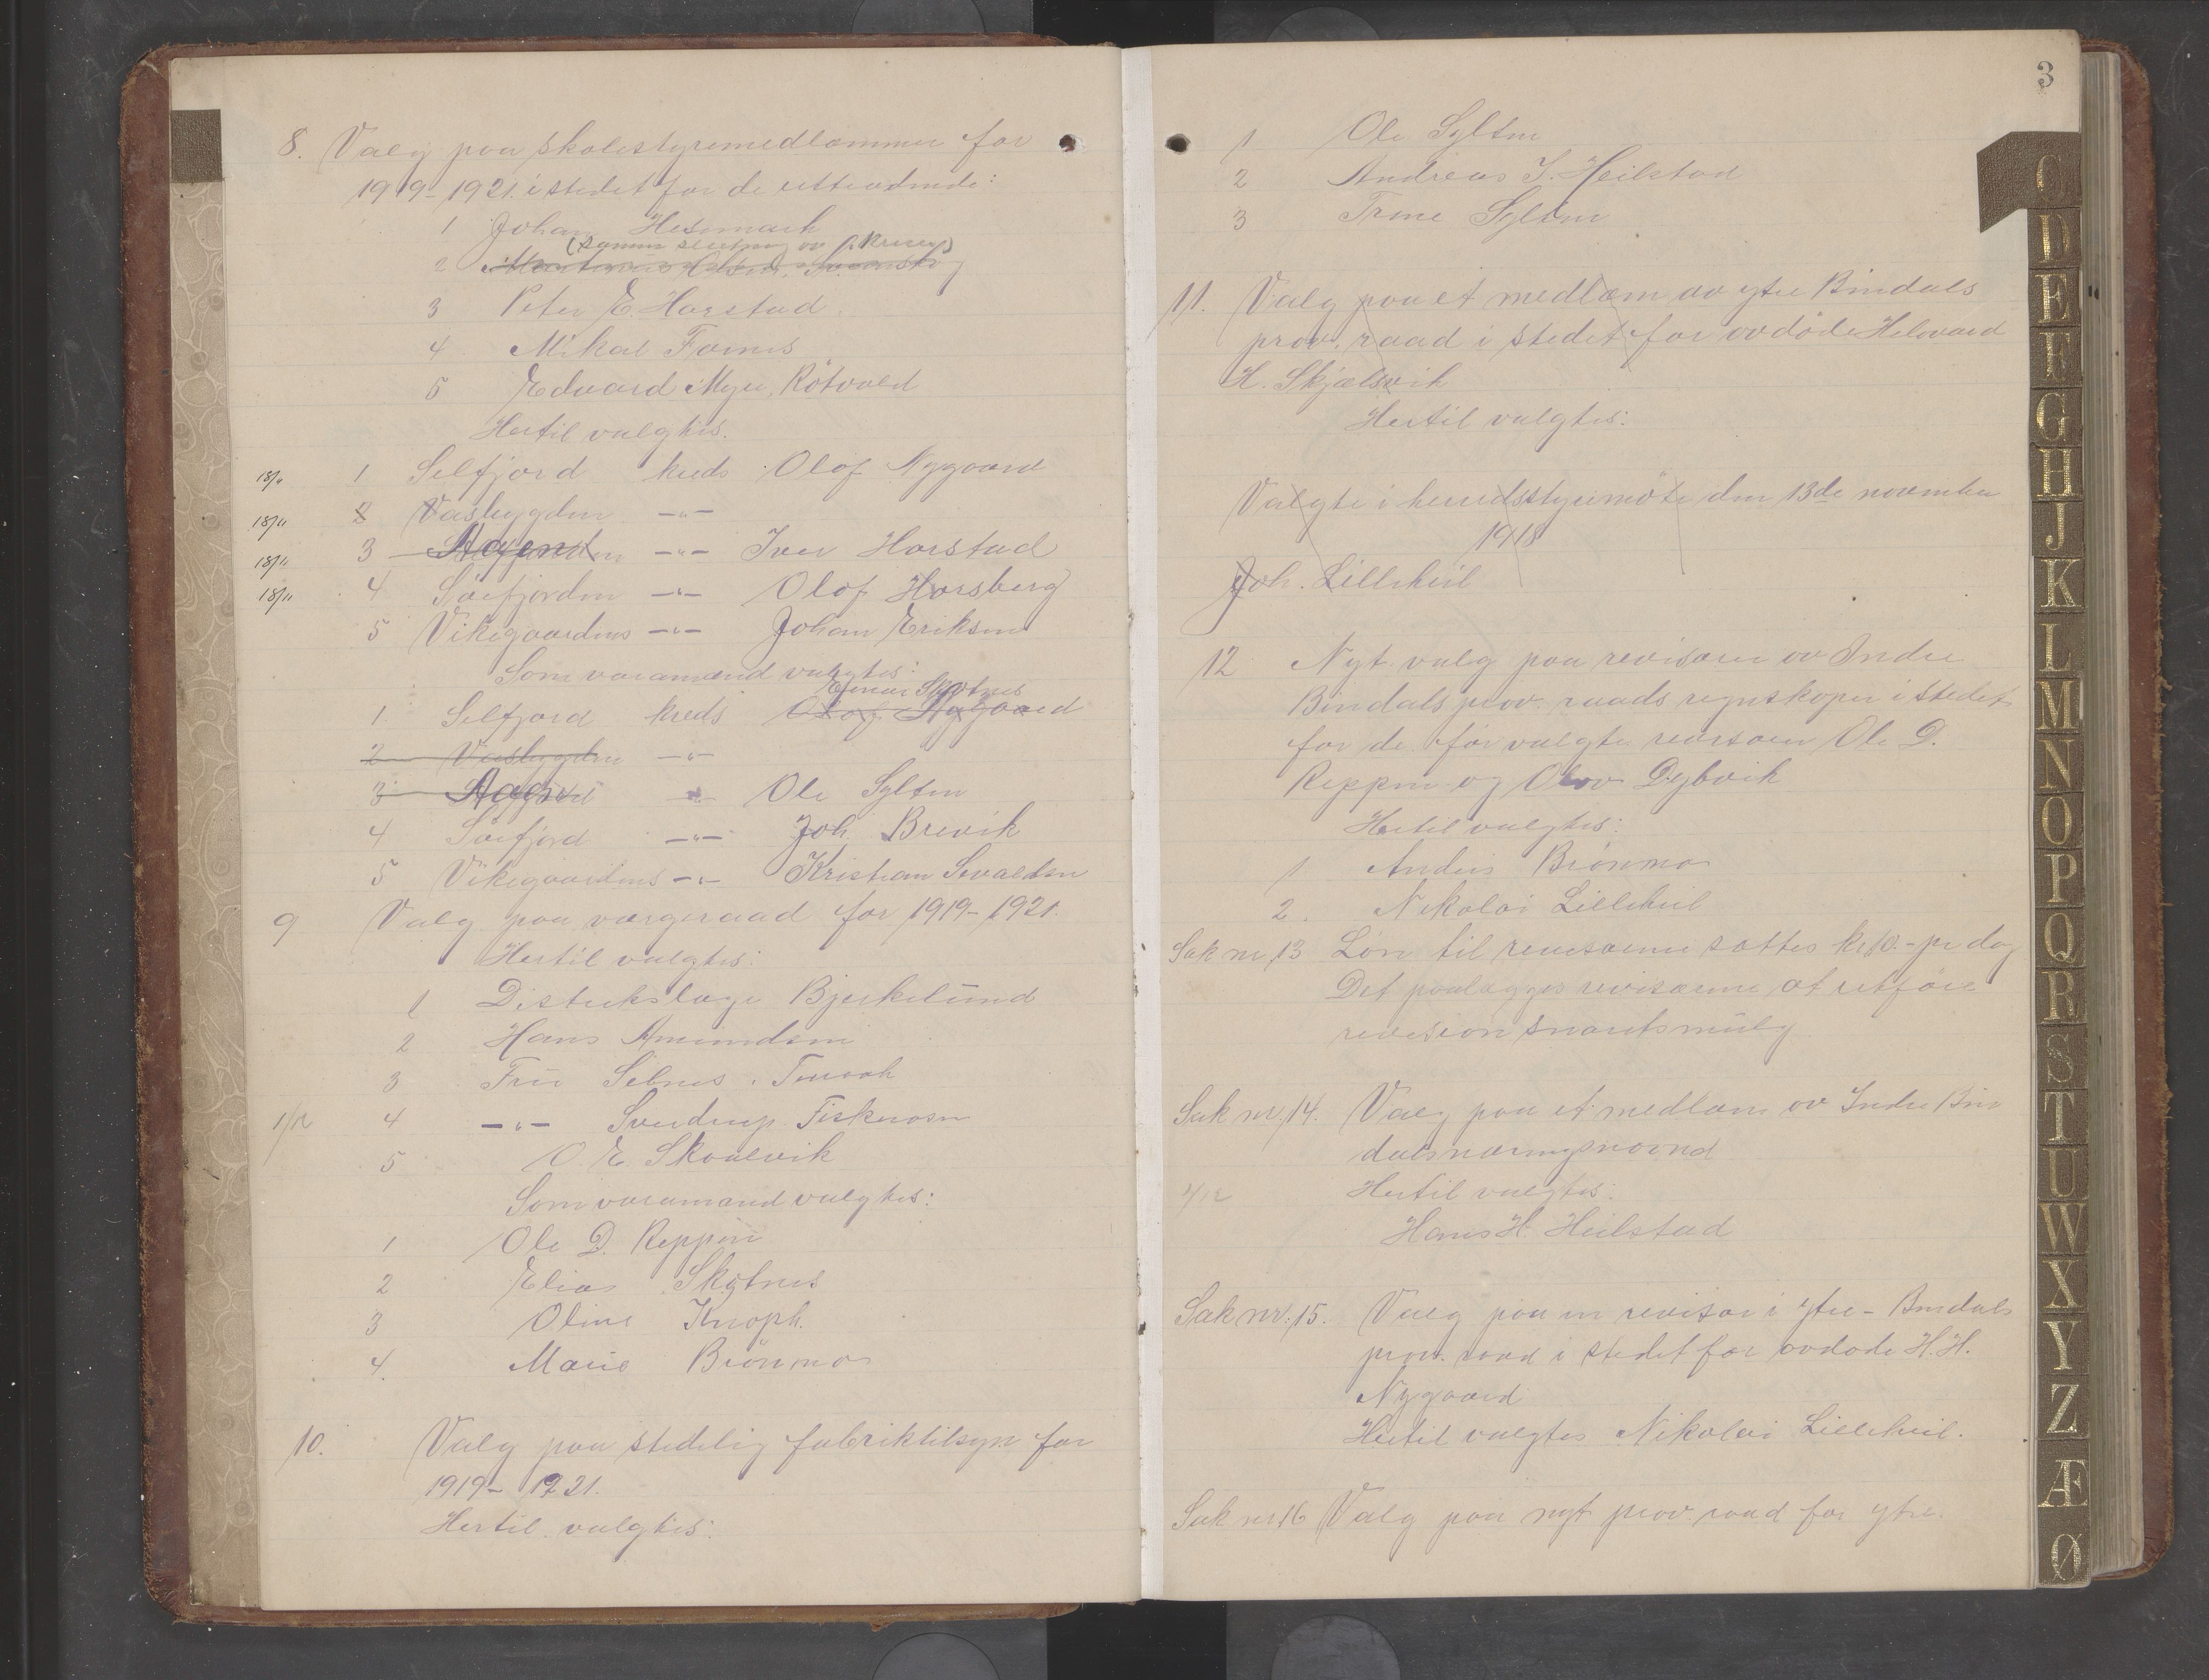 8. Valg paa skolestyremedlemmer for
1919-1921 i stedet for de uttrædende:
1 Johan Hesmark
(samme
2
3 Peter E. Horstad
4 Mikal Fornes
5 Edvard Myr, Røtvold
Hertil valgtes.
18/11 1 Selfjord kreds Olof Nygaard
18/11 2 Vasbygden -"-
18/11 3 Aagen -"- Iver Horstad
18/11 4 Sørfjorden -"- Olof Horsberg
5 Vikegaardens -"- Johan Eriksen
Som varamænd valgtes:
Einar Skotnes
1. Selfjord kreds Olof Nygaard
2 Vasbygden -"-
3 -"- Ole Sylten
4 Sørfjord -"- Joh. Brevik
5 Vikegaardens -"- Kristian Sevaldsen
9 Valg paa vergeraad for 1919-1921.
Hertil valgtes:
1 Distrikslæge Bjerkelund
2 Hans Amundsen
3 Fru Selnes, Terraak
1/12 4 -"- Sverdrup Fiskerosen
5 O. E. Skaalvik
Som varamænd valgtes:
1 Ole D. Reppen
2 Elias Skotnes
3 Oline Knoph.
4. Marie Brønmo
10. Valg paa stedelig fabriktilsyn for
1919-1921.
Hertil valgtes:
3
1 Ole Sylten
2 Andreas J. Heilstad
3 Trine Sylten
11. Valg paa et medlem av ytre Bindals
prov. raad i stedet for avdøde Helvard
H. Skjælsvik
Hertil valgtes:
Valgte i herredsstyremøte den 13de november
1918
Joh. Lilleheil
12 Nyt valg paa revisorer av Indre
Bindals prov. raads regnskaper i stedet
for de før valgte revisorer Ole D.
Reppen og Olav Dybvik
Hertil valgtes:
1 Anders Brønmo
2. Nikolai Lilleheil
Sak nr. 13 Løn til revisorerne sættes kr 10.- pr dag
Det paalægges revisorerne at utføre
revision snarest mulig
Sak nr. 14. Valg paa et medlem av Indre Bin
dals næringsnævnd
4/12 Hertil valgtes:
Hans H. Heilstad
Sak nr. 15. Valg paa en revisor i ytre-Bindals
prov. raad i stedet for avdøde H. H.
Nygaard
Hertil valgtes Nikolai Lilleheil.
Sak nr 16 Valg paa nyt prov. raad for ytre
C
D
E
F
G
H
J
K
L
M
N
O
P
Q
R
S
T
U
W
X
Y
Z
Æ
Ø